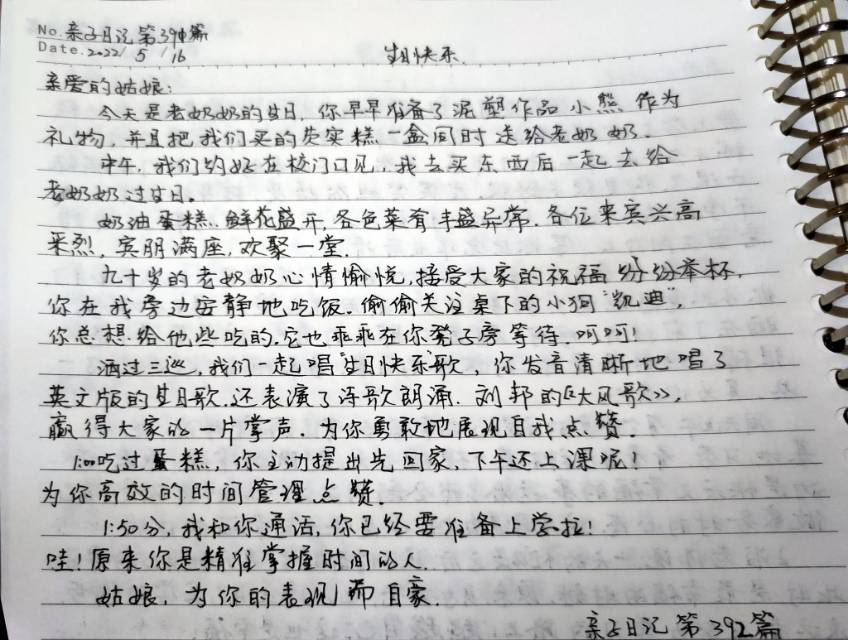 No. 亲子日记 第391篇
Date. 2022/ 5 / 16
生日快乐
亲爱的姑娘:
今天是老奶奶的生日,你早早准备了泥塑作品小熊作为
礼物,并且把我们买的芡实糕一盒同时送给老奶奶.
中午,我们约好在校门口见,我去买东西后一起去给
老奶奶过生日。
奶油蛋糕、鲜花盛开,各色菜肴丰盛异常.各位来宾兴高
采烈,宾朋满座,欢聚一堂.
九十岁的老奶奶心情愉悦,接受大家的祝福纷纷举杯,
你在我旁边安静地吃饭.偷偷关注桌下的小狗"凯迪",
你总想给他些吃的.它也乖乖在你凳子旁等待.呵呵!
酒过三巡,我们一起唱"生日快乐"歌,你发音清晰地唱了
英文版的生日歌.还表演了诗歌朗诵.刘邦的《大风歌》,
赢得大家的一片掌声.为你勇敢地展现自我点赞.
1:00吃过蛋糕,你主动提出先回家,下午还上课呢!
为你高效的时间管理点赞.
1:50分,我和你通话,你已经要准备上学拉!
哇!原来你是精准掌握时间的人.
姑娘,为你的表现而自豪.
亲子日记 第392篇